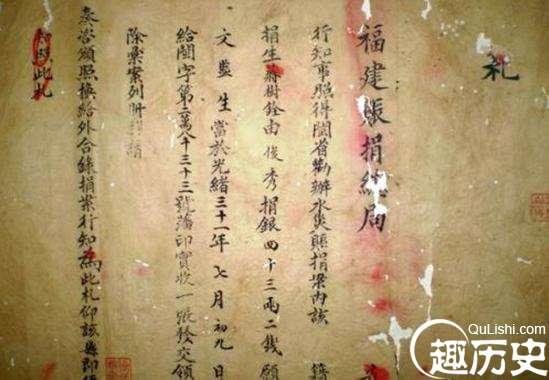 札
福建賑捐總局
行知事照得閩省勸辦水災賑捐案內該
捐生蔣樹銓由俊秀捐銀四十三兩二錢願
文監生當於光緒三十一年七月初九日
給閩字第二萬八千三十三號藩印實收一張發交領
除彙案列冊詳請
奏咨頒照換給外合錄捐案行知為此札仰該縣即
知照此札
QuLishi.com
趣历史